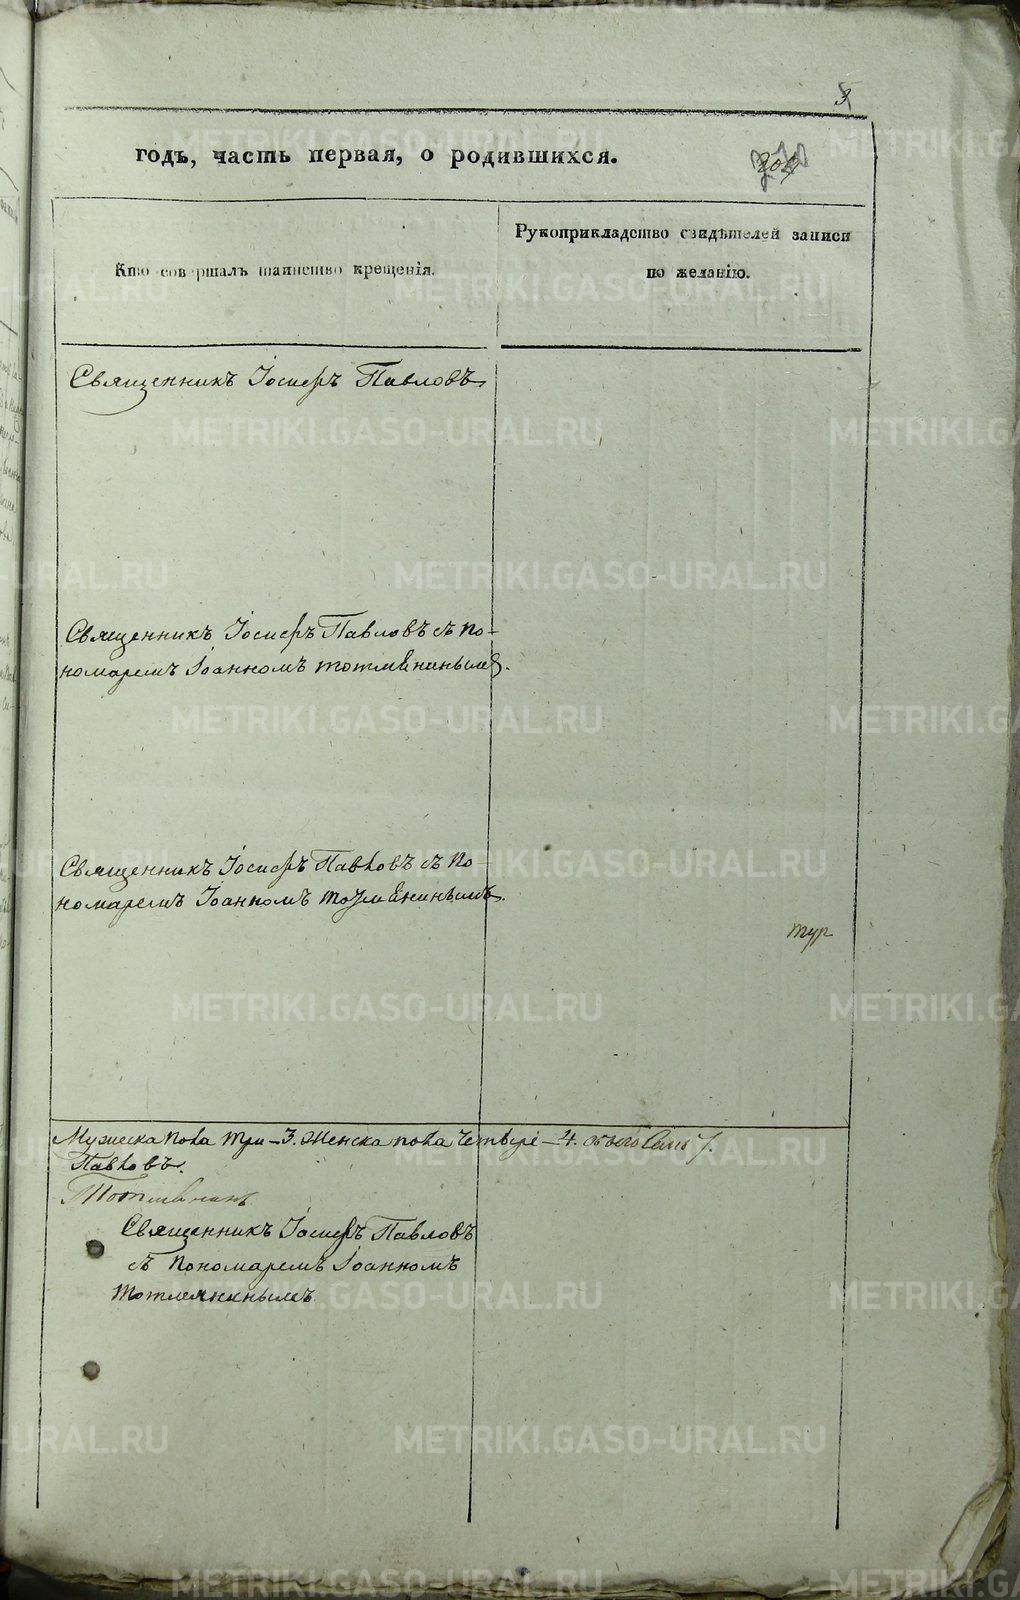 3
годъ, часть первая, о родившихся.
Кто совершалъ таинство крещенія.
Рукоприкладство свидѣтелей записи
по желанію.
Священникъ Іосифъ Павловъ
Священникъ Іосифъ Павловъ съ по-
номаремъ Іоанномъ тотмѣнинымъ.
Священникъ Іосифъ Павловъ съ по-
номаремъ Іоанномъ тотмѣнинымъ.
тур
Мужеска пола три – 3. Женска пола четыре – 4. обоего семь 7.
Павловъ.
Священникъ Іосифъ Павловъ
съ пономаремъ Іоанномъ
тотмянинымъ
METRIKI.GASO-URAL.RU